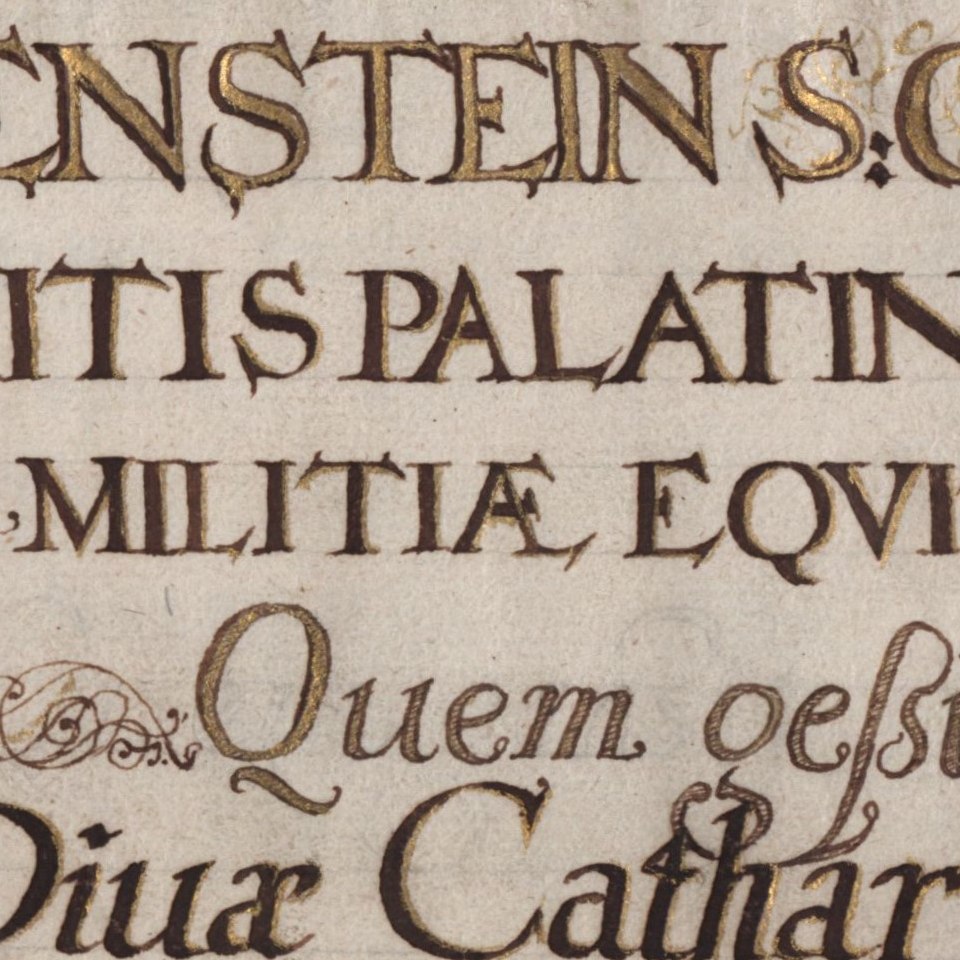 ENSTEIN S: C
ITIS PALATIN
MILITIÆ EQVI
Quem oeßi
Diuæ Cathar